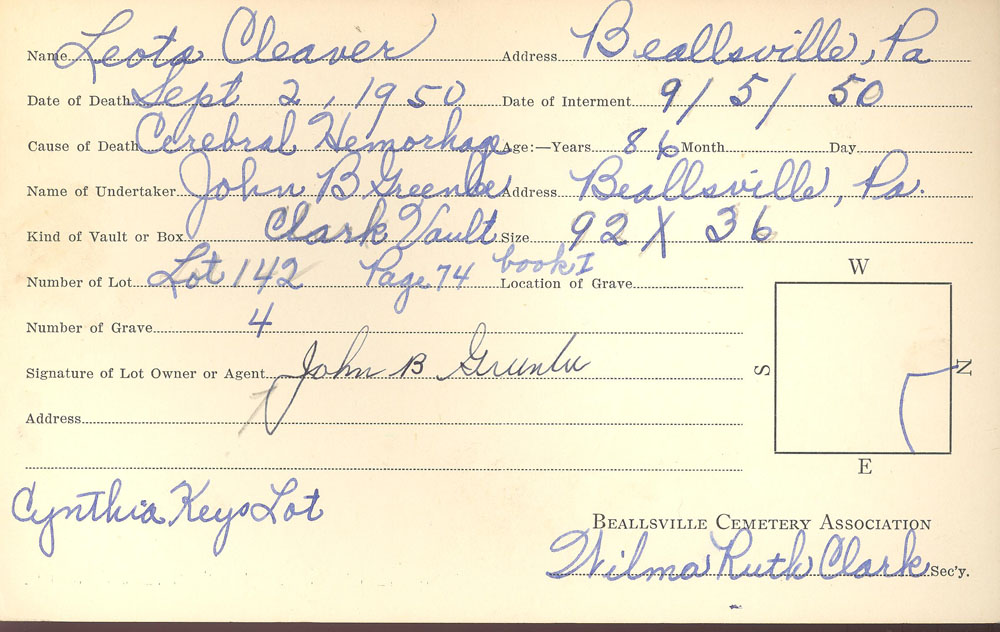 Name Leota Cleaver Address Beallsville, Pa
Date of Death Sept 2, 1950 Date of Interment 9/ 5/ 50
Cause of Death Cerebral Hemorhage Age:—Years 86 Month Day
Name of Undertaker John B Greenlee Address Beallsville, Pa.
Kind of Vault or Box Clark Vault Size 92 X 36
Number of Lot Lot 142 Page 74 book I Location of Grave
W
Number of Grave 4
Signature of Lot Owner or Agent John B Greenlee
S
N
Address
E
Cynthia Keys Lot
BEALLSVILLE CEMETERY ASSOCIATION
Wilma Ruth Clark Sec'y.